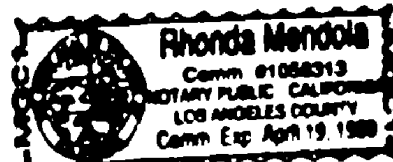 Rhonda Mendola
Comm #1056313
NOTARY PUBLIC CALIFORNIA
LOS ANGELES COUNTY
Comm Exp April 19, 1999